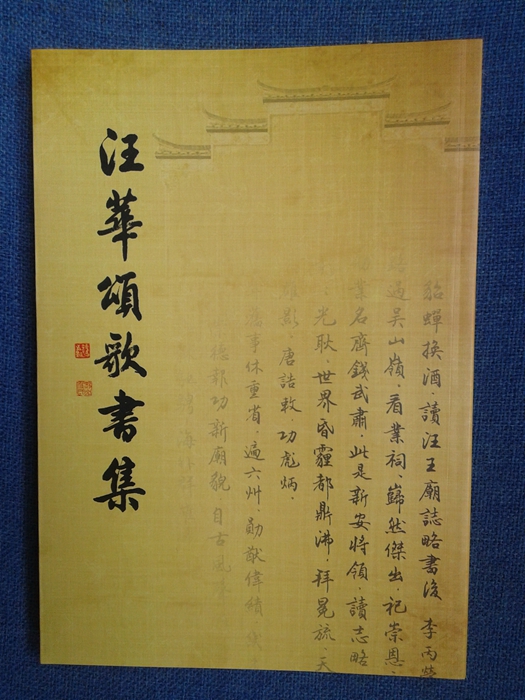 汪華頌歌書集
貂蟬換酒·讀汪王廟誌略書後 李丙
過吳山嶺·看業祠·巋然傑出·祀崇恩·
業名齊錢武肅·此是新安將領·讀志略
光耿·世界昏霾都鼎沸·拜冕旒·天
影·唐誥敕·功彪炳·
事休重省·遍六州·勛猷偉績
德報功新廟貌 自古